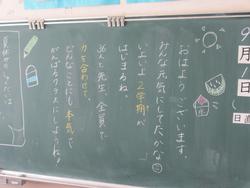 9月1日
日直
おはようございます。
みんな元気にしてたかな
いよいよ2学期が
はじまるね。
36人と先生、全員で
力を合わせて、
どんなことにも本気で
がんばるクラスにしようね!